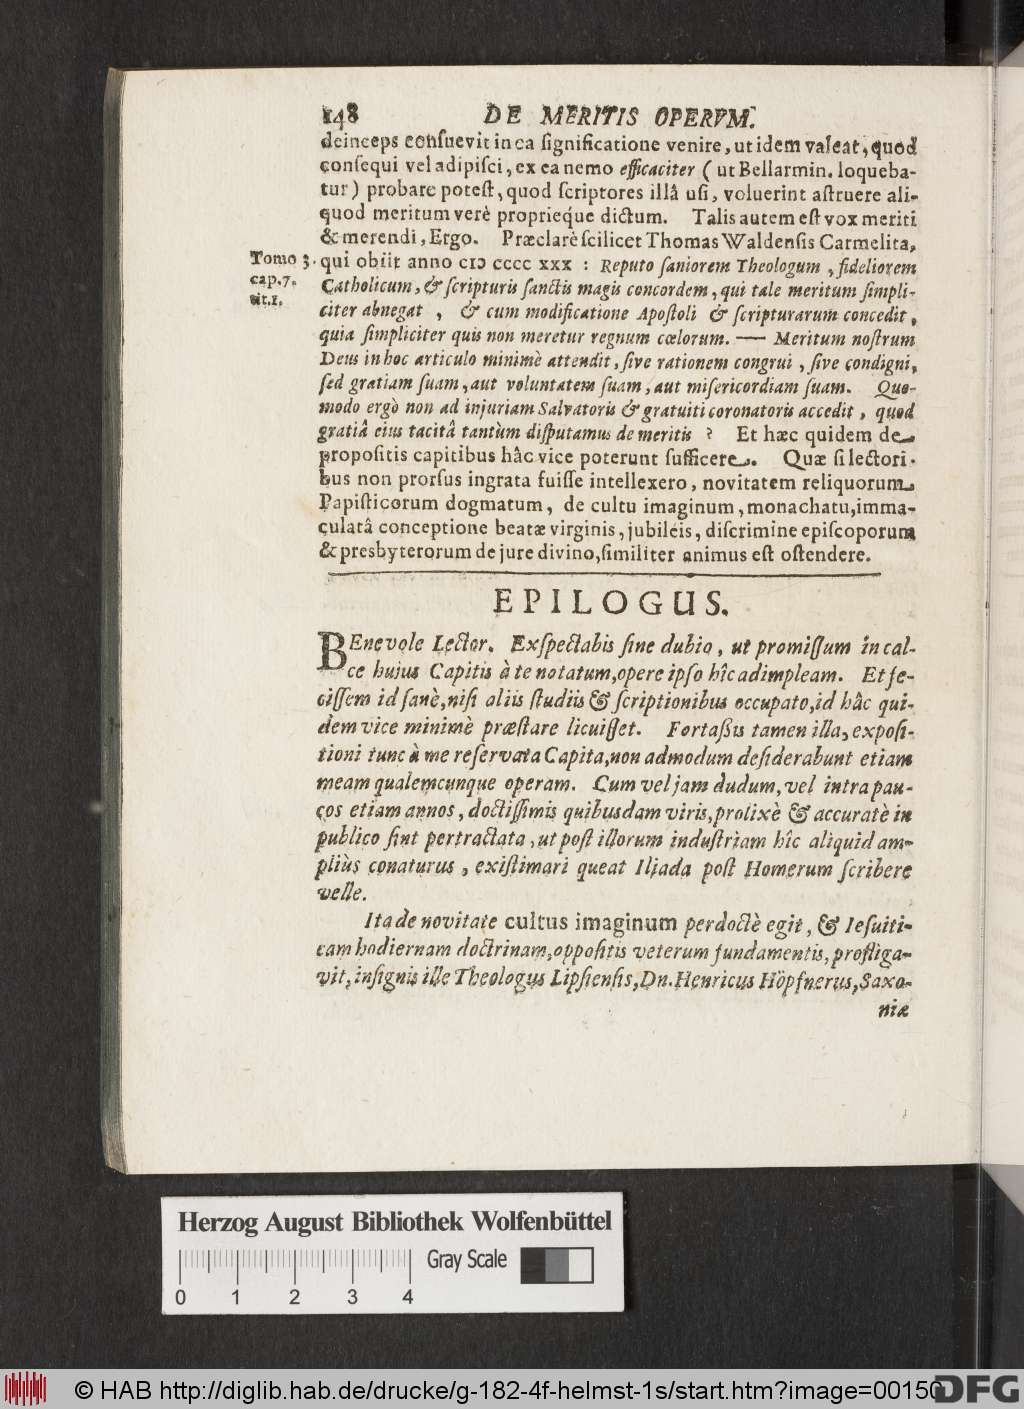 148 DE MERITIS OPERVM.
deinceps consuevit in ea significatione venire, ut idem valeat, quod
consequi vel adipisci, ex ea nemo efficaciter ( ut Bellarmin. loqueba-
tur ) probare potest, quod scriptores illâ usi, voluerint astruere ali-
quod meritum verè proprieq́ue dictum. Talis autem est vox meriti
& merendi, Ergo. Præclarè scilicet Thomas Waldensis Carmelita,
Tomo 3.
cap. 7.
tit. 1.
qui obiit anno cIↄ cccc xxx : Reputo saniorem Theologum, fideliorem
Catholicum, & scripturis sanctis magis concordem, qui tale meritum simpli-
citer abnegat , & cum modificatione Apostoli & scripturarum concedit,
quia simpliciter quis non meretur regnum cœlorum. — Meritum nostrum
Deus in hoc articulo minimè attendit, sive rationem congrui, sive condigni,
sed gratiam suam, aut voluntatem suam, aut misericordiam suam. Quo-
modo ergò non ad injuriam Salvatoris & gratuiti coronatoris accedit, quod
gratiâ eius tacitâ tantùm disputamus de meritis ? Et hæc quidem de
propositis capitibus hâc vice poterunt sufficere. Quæ si lectori-
bus non prorsus ingrata fuisse intellexero, novitatem reliquorum
Papisticorum dogmatum, de cultu imaginum, monachatu, imma-
culatâ conceptione beatæ virginis, jubileis, discrimine episcoporum
& presbyterorum de jure divino, similiter animus est ostendere.
EPILOGUS.
BEnevole Lector. Exspectabis sine dubio, ut promissum in cal-
ce hujus Capitis à te notatum, opere ipso hîc adimpleam. Et fe-
cissem id sanè, nisi aliis studiis & scriptionibus occupato, id hâc qui-
dem vice minimè præstare licuisset. Fortassis tamen illa, exposi-
tioni tunc à me reservata Capita, non admodum desiderabunt etiam
meam qualemcunque operam. Cum vel jam dudum, vel intra pau-
cos etiam annos, doctissimis quibusdam viris, prolixè & accuratè in
publico sint pertractata, ut post illorum industriam hîc aliquid am-
pliùs conaturus, existimari queat Iliada post Homerum scribere
velle.
Ita de novitate cultus imaginum perdoctè egit, & Iesuiti-
cam hodiernam doctrinam, oppositis veterum fundamentis, profliga-
vit, insignis ille Theologus Lipsiensis, Dn. Henricus Höpfnerus, Saxo-
niæ
Herzog August Bibliothek Wolfenbüttel
Gray Scale
0 1 2 3 4
© HAB http://diglib.hab.de/drucke/g-182-4f-helmst-1s/start.htm?image=00150
DFG